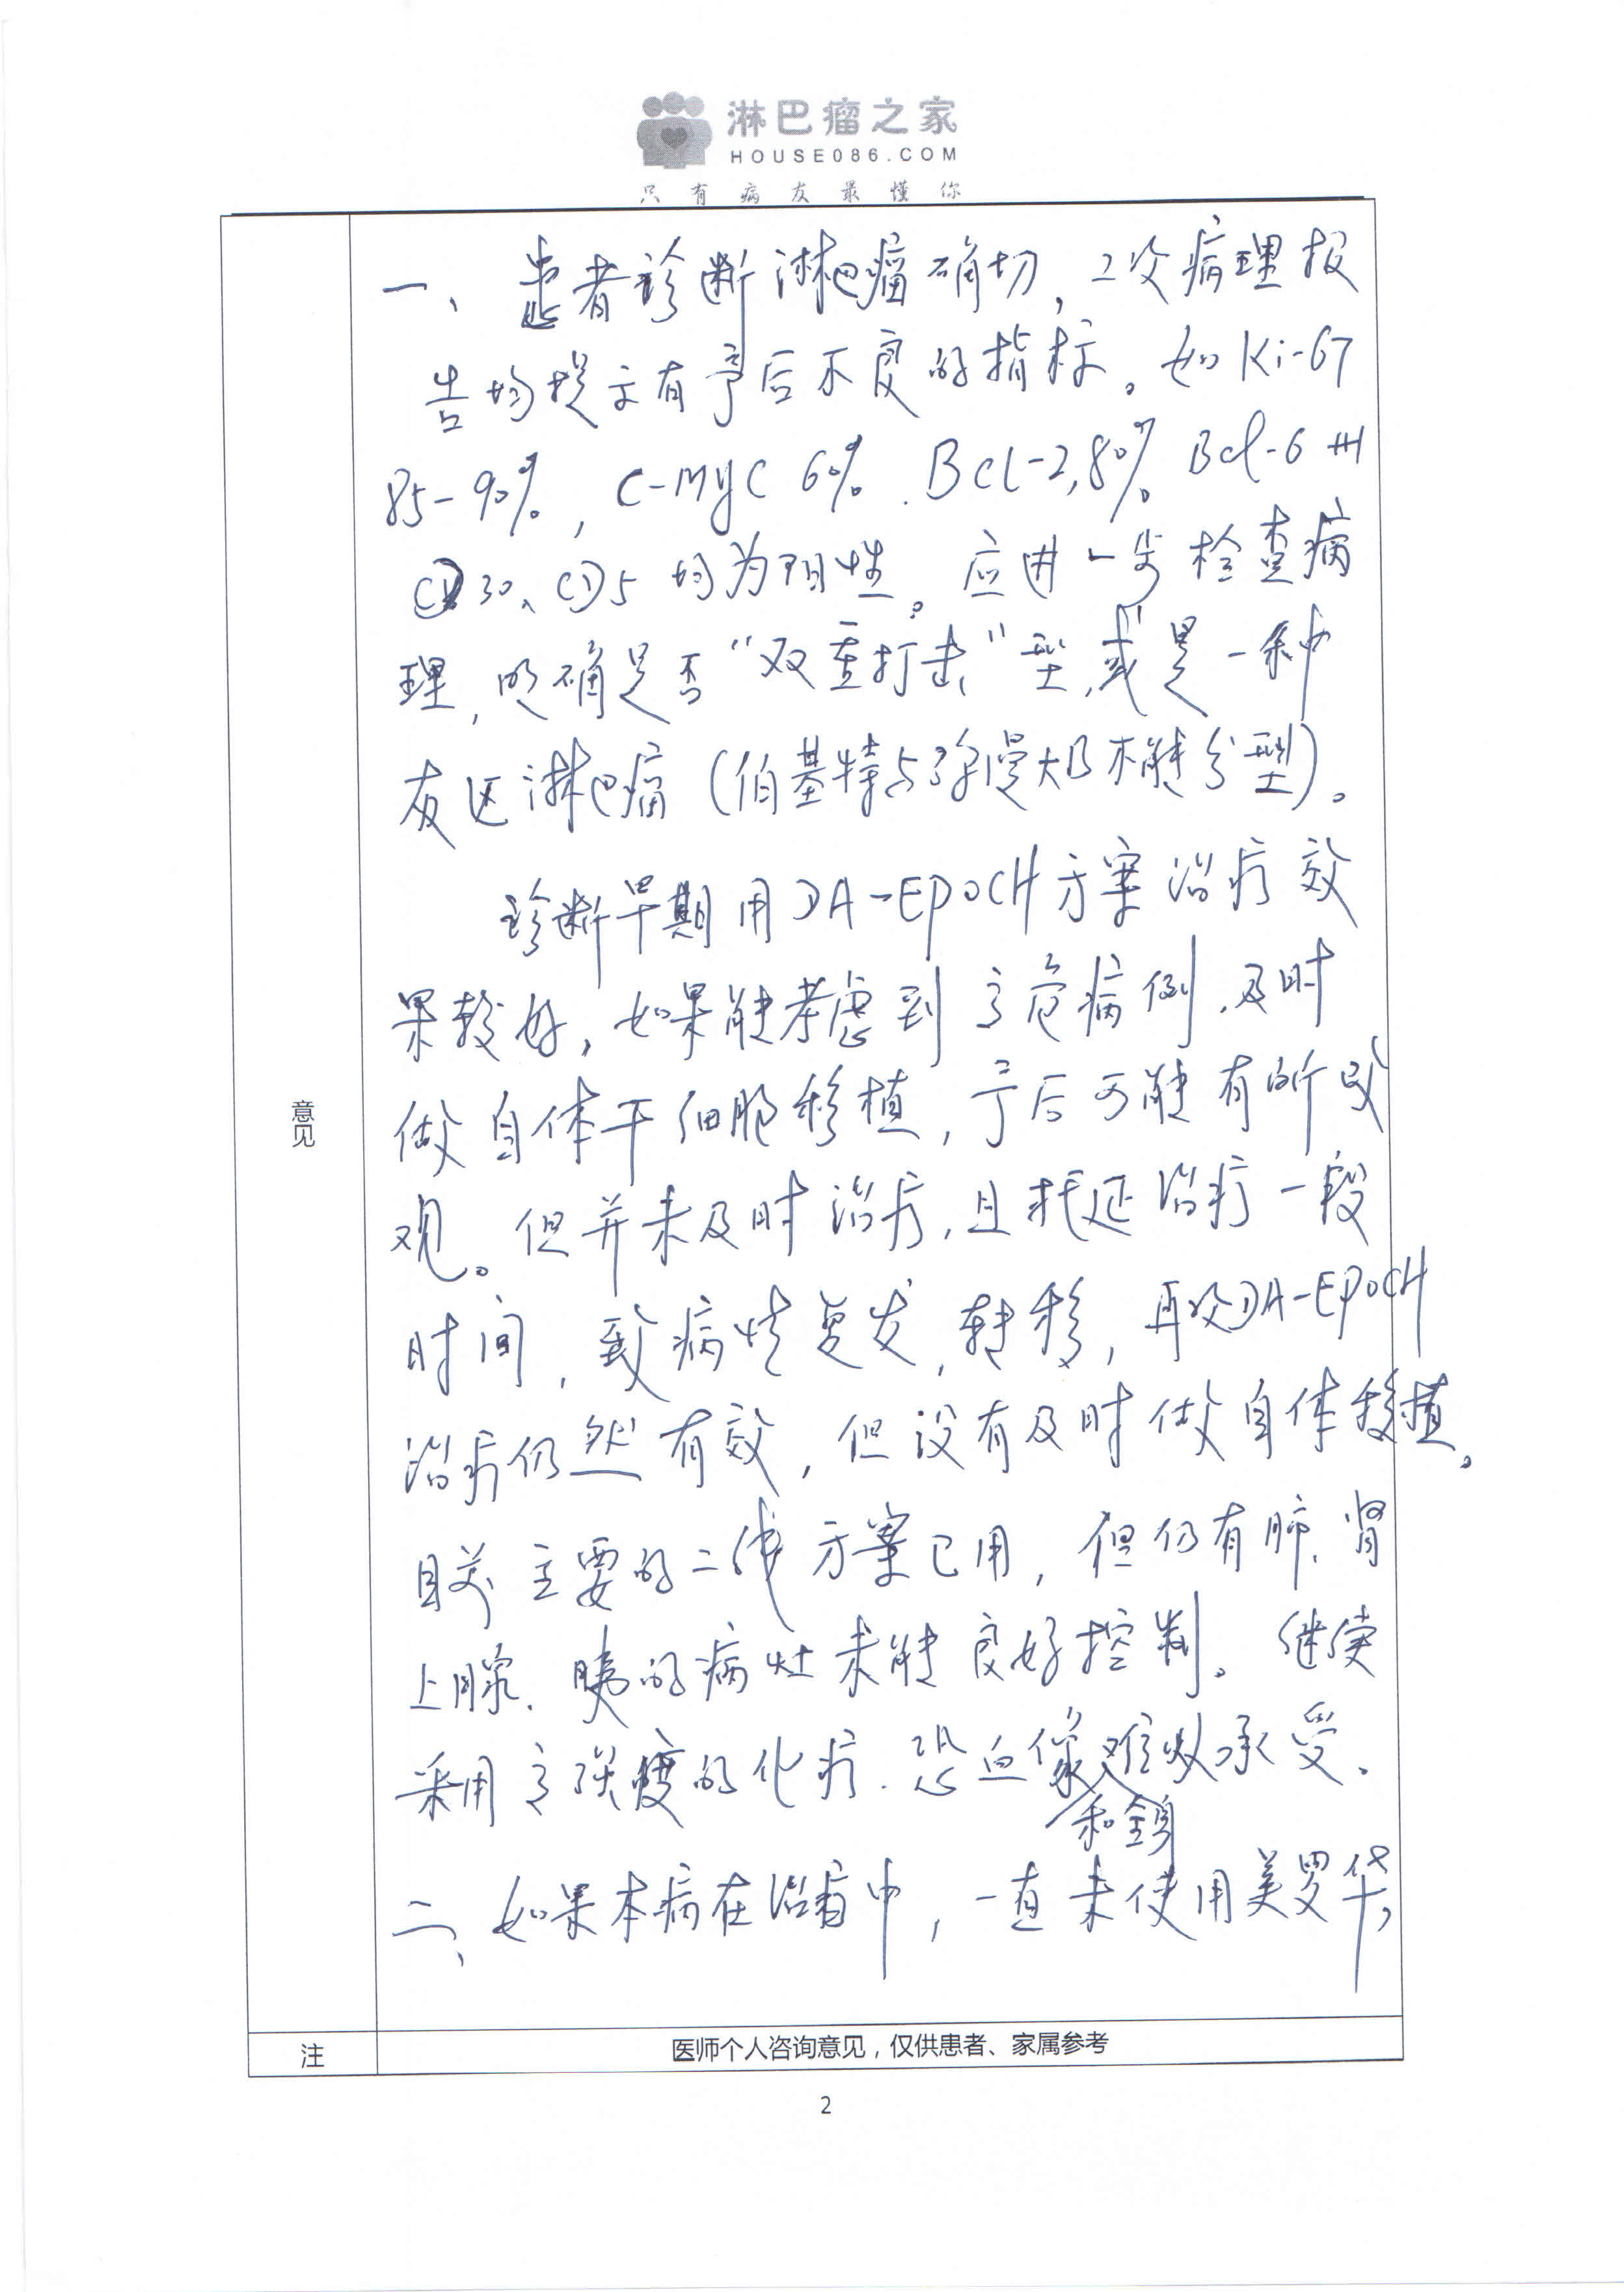 淋巴瘤之家
HOUSE086.COM
只有病友最懂你
一、患者诊断淋巴瘤确切,2次病理报
告均提示有予后不良的指标。如Ki-67
85-90%,C-MYC 60%.Bcl-2,80%.Bcl-6 +++
CD30、CD5均为阳性。应进一步检查病
理,明确是否“双重打击”型,或是一种
灰区淋巴瘤(伯基特与弥漫大B不能分型)。
诊断早期用DA-EPOCH方案治疗效
果较好,如果能考虑到高危病例,及时
做自体干细胞移植,予后可能有所改
观。但并未及时治疗,且拖延治疗一段
时间,致病情复发,转移,再次DA-EPOCH
治疗仍然有效,但没有及时做自体移植。
目前主要的二线方案已用,但仍有肺.肾
上腺.胰的病灶未能良好控制。继续
采用高强度的化疗.恐血像难以承受.
和全身
二、如果本病在治疗中,一直未使用美罗华,
意见
注
医师个人咨询意见,仅供患者、家属参考
2